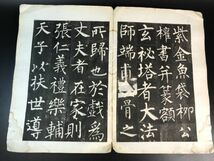 紫金魚袋柳公
權書并篆額
玄秘塔者大法
師端甫靈骨之
所歸也於戲為
丈夫者在家則
張仁義禮樂輔
天子以扶世導